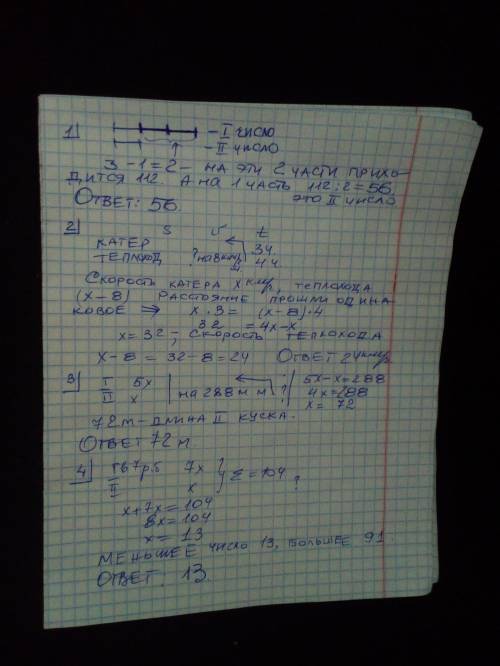 1) - I число
- II число
3 - 1 = 2 - на эти 2 части прихо-
дится 112. А на 1 часть 112:2=56.
это II число
Ответ: 56.
2) S v t
катер 3ч
теплоход ? на 8 км/ч 4ч
Скорость катера x км/ч, теплохода
(x-8) Расстояние прошли одина-
ковое ⇒ x·3 = (x-8)·4
32 = 4x-x
x = 32; скорость теплохода
x-8 = 32-8=24 Ответ 24 км/ч
3) I 5x на 288 м м ? 5x-x=288
II x 4x=288
x = 72
72м - длина II куска.
Ответ 72 м.
4) I в 7 р.б 7x Σ = 104
II x ?
x+7x = 104
8x = 104
x = 13
Меньшее число 13, большее 91.
Ответ. 13.